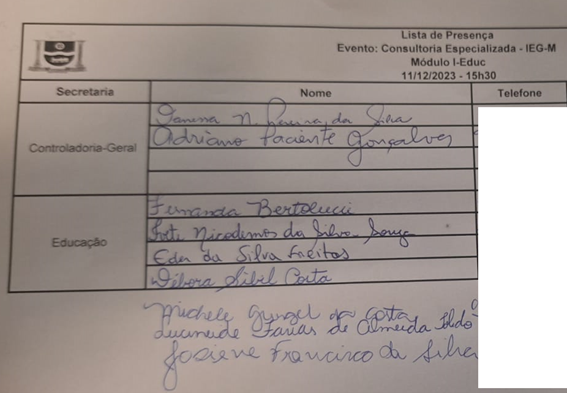 Lista de Presença
Evento: Consultoria Especializada - IEG-M
Módulo I-Educ
11/12/2023 - 15h30
Secretaria Nome Telefone
Controladoria-Geral
N. da Silva
Adriano Paciente Gonçalves
Educação
Fernanda Bertolucci
Nicodemos da Silva Souza
Eder da Silva Freitas
Débora Sibel Costa
Michele Gurgel da Costa
Lucineide Farias de Almeida
Josiene Francisco da Silva